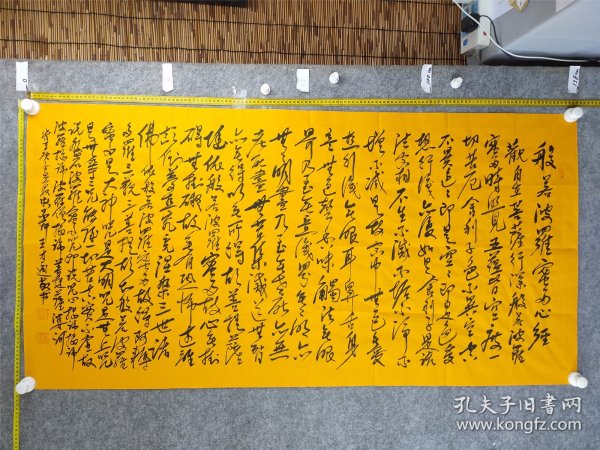 般若波羅蜜多心經
觀自在菩薩行深般若波羅
蜜多時照見五蘊皆空度一
切苦厄舍利子色不異空空
不異色色即是空空即是色受
想行識亦復如是舍利子是諸
法空相不生不滅不垢不淨不
增不減是故空中無色無受
想行識無眼耳鼻舌身
意無色聲香味觸法無眼
界乃至無意識界無無明亦
無無明盡乃至無老死亦無
老死盡無苦集滅道無智
亦無得以無所得故菩提薩
埵依般若波羅蜜多故心無罣
礙無罣礙故無有恐怖遠離
顛倒夢想究竟涅槃三世諸
佛依般若波羅蜜多故得阿耨
多羅三藐三菩提故知般若波羅
蜜多是大神咒是大明咒是無上咒
是無等等咒能除一切苦真實不虛故
說般若波羅蜜多咒即說咒曰揭諦揭諦
波羅揭諦波羅僧揭諦菩提薩婆訶
孔夫子旧书网
www.kongfz.com